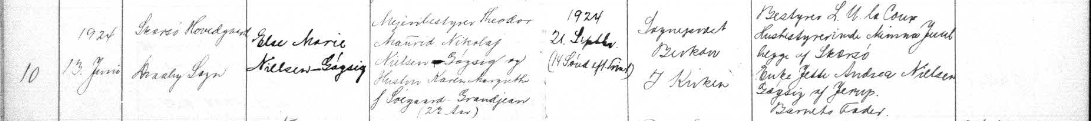 10
1924
13. Juni
Skarsø Hovedgaard
Draaby Sogn
Else Marie
Nielsen-Gøgsig
Mejeribestyrer Theodor
Maurid Nikolaj
Nielsen-Gøgsig og
Hustru Karen Margrethe
f. Søegaard-Grandjean
(22 Aar)
1924
21. Septbr.
(14 Sønd eft Trinit)
Sognepræst
Birkøw
I Kirken
Bestyrer L. U. la Cour
Husbestyrerinde Minna Juul
begge af Skarsø
Enke Jette Andrea Nielsen
Gøgsig af Jerup.
Barnets Fader.